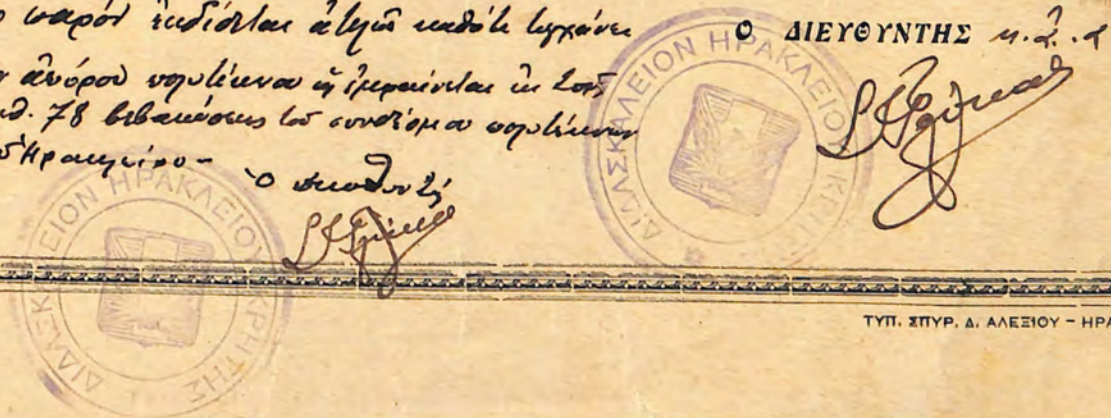 παρόν ἐκδίδεται ἀτελῶς καθότι τυγχάνει
ἀπόρου πολυτέκνου ὡς ἐμφαίνεται ἐκ τῆς
78 βεβαιώσεως τοῦ συνδέσμου πολυτέκνων
Ἡρακλείου -
Ὁ Διευθυντής
Ο ΔΙΕΥΘΥΝΤΗΣ
ΔΙΔΑΣΚΑΛΕΙΟΝ ΗΡΑΚΛΕΙΟΥ ΚΡΗ
ΔΙΔΑΣΚΑΛΕΙΟΝ ΗΡΑΚΛΕΙΟΥ ΚΡΗΤΗΣ
ΤΥΠ. ΣΠΥΡ. Δ. ΑΛΕΞΙΟΥ - ΗΡΑ